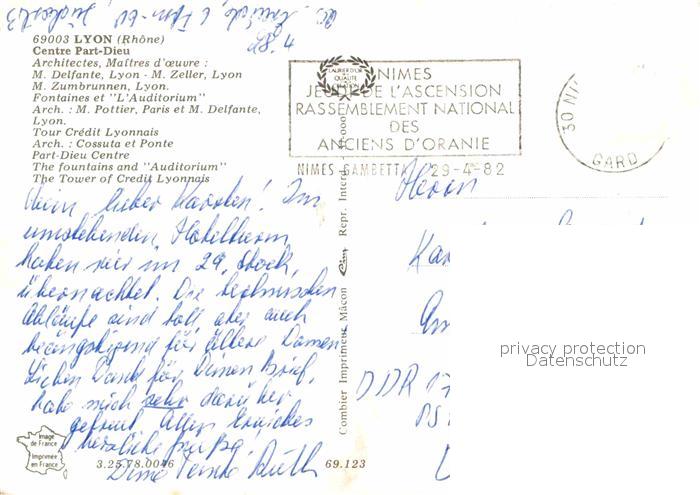 28.4
69003 LYON (Rhône)
Centre Part-Dieu
Architectes, Maîtres d'œuvre :
M. Delfante, Lyon - M. Zeller, Lyon
M. Zumbrunnen, Lyon.
Fontaines et "L'Auditorium"
Arch. : M. Pottier, Paris et M. Delfante,
Lyon.
Tour Crédit Lyonnais
Arch. : Cossuta et Ponte
Part-Dieu Centre
The fountains and "Auditorium"
The Tower of Credit Lyonnais
Mein lieber Karsten! Im
umstehenden Hotelturm
haben wir im 29. Stock
übernachtet. Die technischen
Abläufe sind toll aber auch
beängstigend für ältere Damen
Lieben Dank für Deinen Brief,
habe mich sehr darüber
gefreut. Alles
herzliche Grüße
Deine Tante Ruth
Image
de France
Imprimée
en France
3.25.78.0046
69.123
Combier Imprimeur Mâcon
Cim
Repr. Interd.
LAURIER D'OR
QUALITE
NIMES
JEUDI DE L'ASCENSION
RASSEMBLEMENT NATIONAL
DES
ANCIENS D'ORANIE
NIMES GAMBETTA 29-4-82
30 NI
GARD
Herrn
Kar
Am
DDR 17
privacy protection
Datenschutz